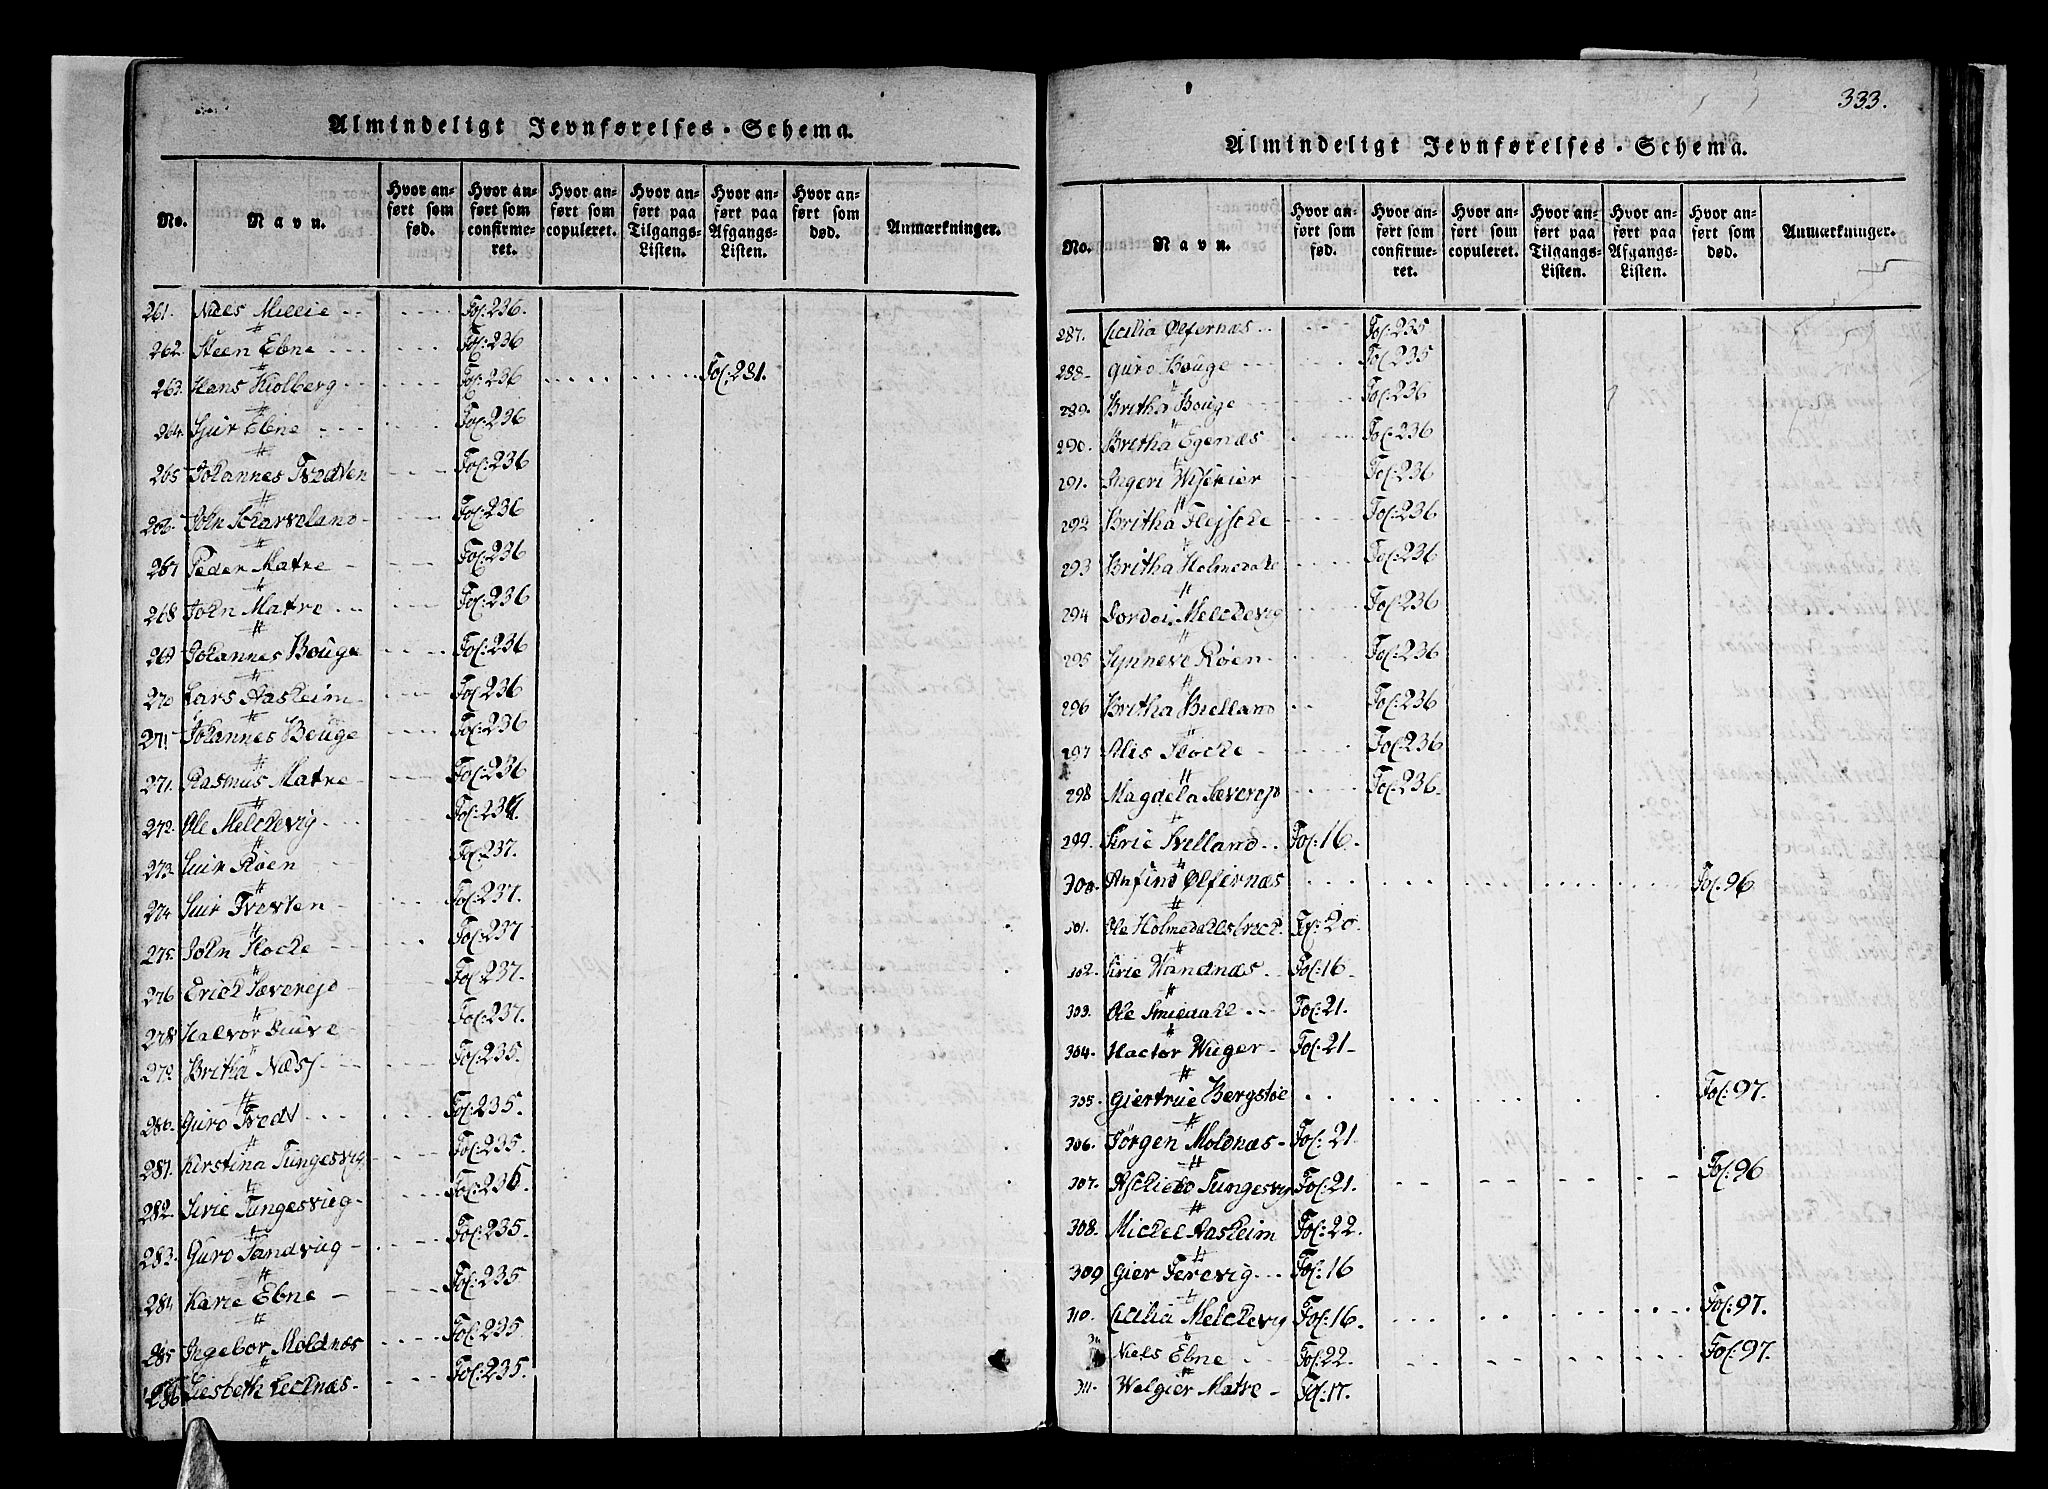 Almindeligt Jevnførelses-Schema.
No. Navn. Hvor anført som fød. Hvor anført som confirmeret. Hvor anført som copuleret. Hvor anført paa Tilgangs-Listen. Hvor anført paa Afgangs-Listen. Hvor anført som død. Anmærkninger.
261. Niels Fol: 236.
262. Steen Ebne Fol: 236
263. Hans Kiolberg Fol: 236 Fol: 281.
264. Siur Ebne Fol: 236
265 Johannes Tvedten Fol: 236
266. John Skarveland Fol: 236
267 Peder Matre Fol: 236
268 John Matre Fol: 236
269 Johannes Bouge Fol: 236
270 Lars Aasheim Fol: 236
271. Johannes Bouge Fol: 236
271. Rasmus Matre Fol: 236
272. Ole Melchevig Fol: 236.
273. Siur Røen Fol: 237.
274 Siur Fol: 237.
275. John Flocke Fol: 237
276 Erich Sæverejd Fol: 237.
278 Halvor Fol: 237.
279 Britha Næss Fol: 235.
280. Guro Tvedt Fol: 235.
281. Kirstina Tungesvig Fol: 235.
282. Sirie Tungesvieg Fol: 235.
283. Guro Sandvig Fol: 235.
284 Karie Ebne Fol: 235.
285 Ingebor Moldnæs Fol: 235.
286 Liesbeth Leclnæs Fol: 235.
333.
Almindeligt Jevnførelses-Schema.
No. Navn. Hvor anført som fød. Hvor anført som confirmeret. Hvor anført som copuleret. Hvor anført paa Tilgangs-Listen. Hvor anført paa Afgangs-Listen. Hvor anført som død. Anmærkninger.
287. Cicilia Ølfernæs Fol: 235
288 Guro Bouge Fol: 235
289. Britha Bouge Fol: 236
290. Britha Egenæs Fol: 236
291. Ingeri Fol: 236
292 Britha Flejsche Fol: 236
293 Britha Holmedahl Fol: 236
294 Jordoi Melchevig Fol: 236
295 Synneve Røen Fol: 236
296 Britha Bielland Fol: 236
297 Alis Flocke Fol: 236
298 Magdela Sæverejd Fol: 236.
299. Sirie Fol: 16.
300. Anfind Ølfernæs Fol: 96
301. Ole Holmedahlsbrech Fol: 20.
302. Sirie Wandnæs Fol: 16
303. Ole Fol: 21.
304. Hactor Wuger Fol: 21
305. Giertrue Bergstøe Fol: 97.
306. Jørgen Moldnæs Fol: 21
307. Aschield Tungesvig Fol: 21. Fol: 96
308. Michel Aasheim Fol: 22.
309 Gier Ferevig Fol: 16
310. Cicilia Melchevig Fol: 16. Fol: 97.
Niels Ebne Fol: 22. Fol: 97.
311. Welgier Matre Fol: 17.